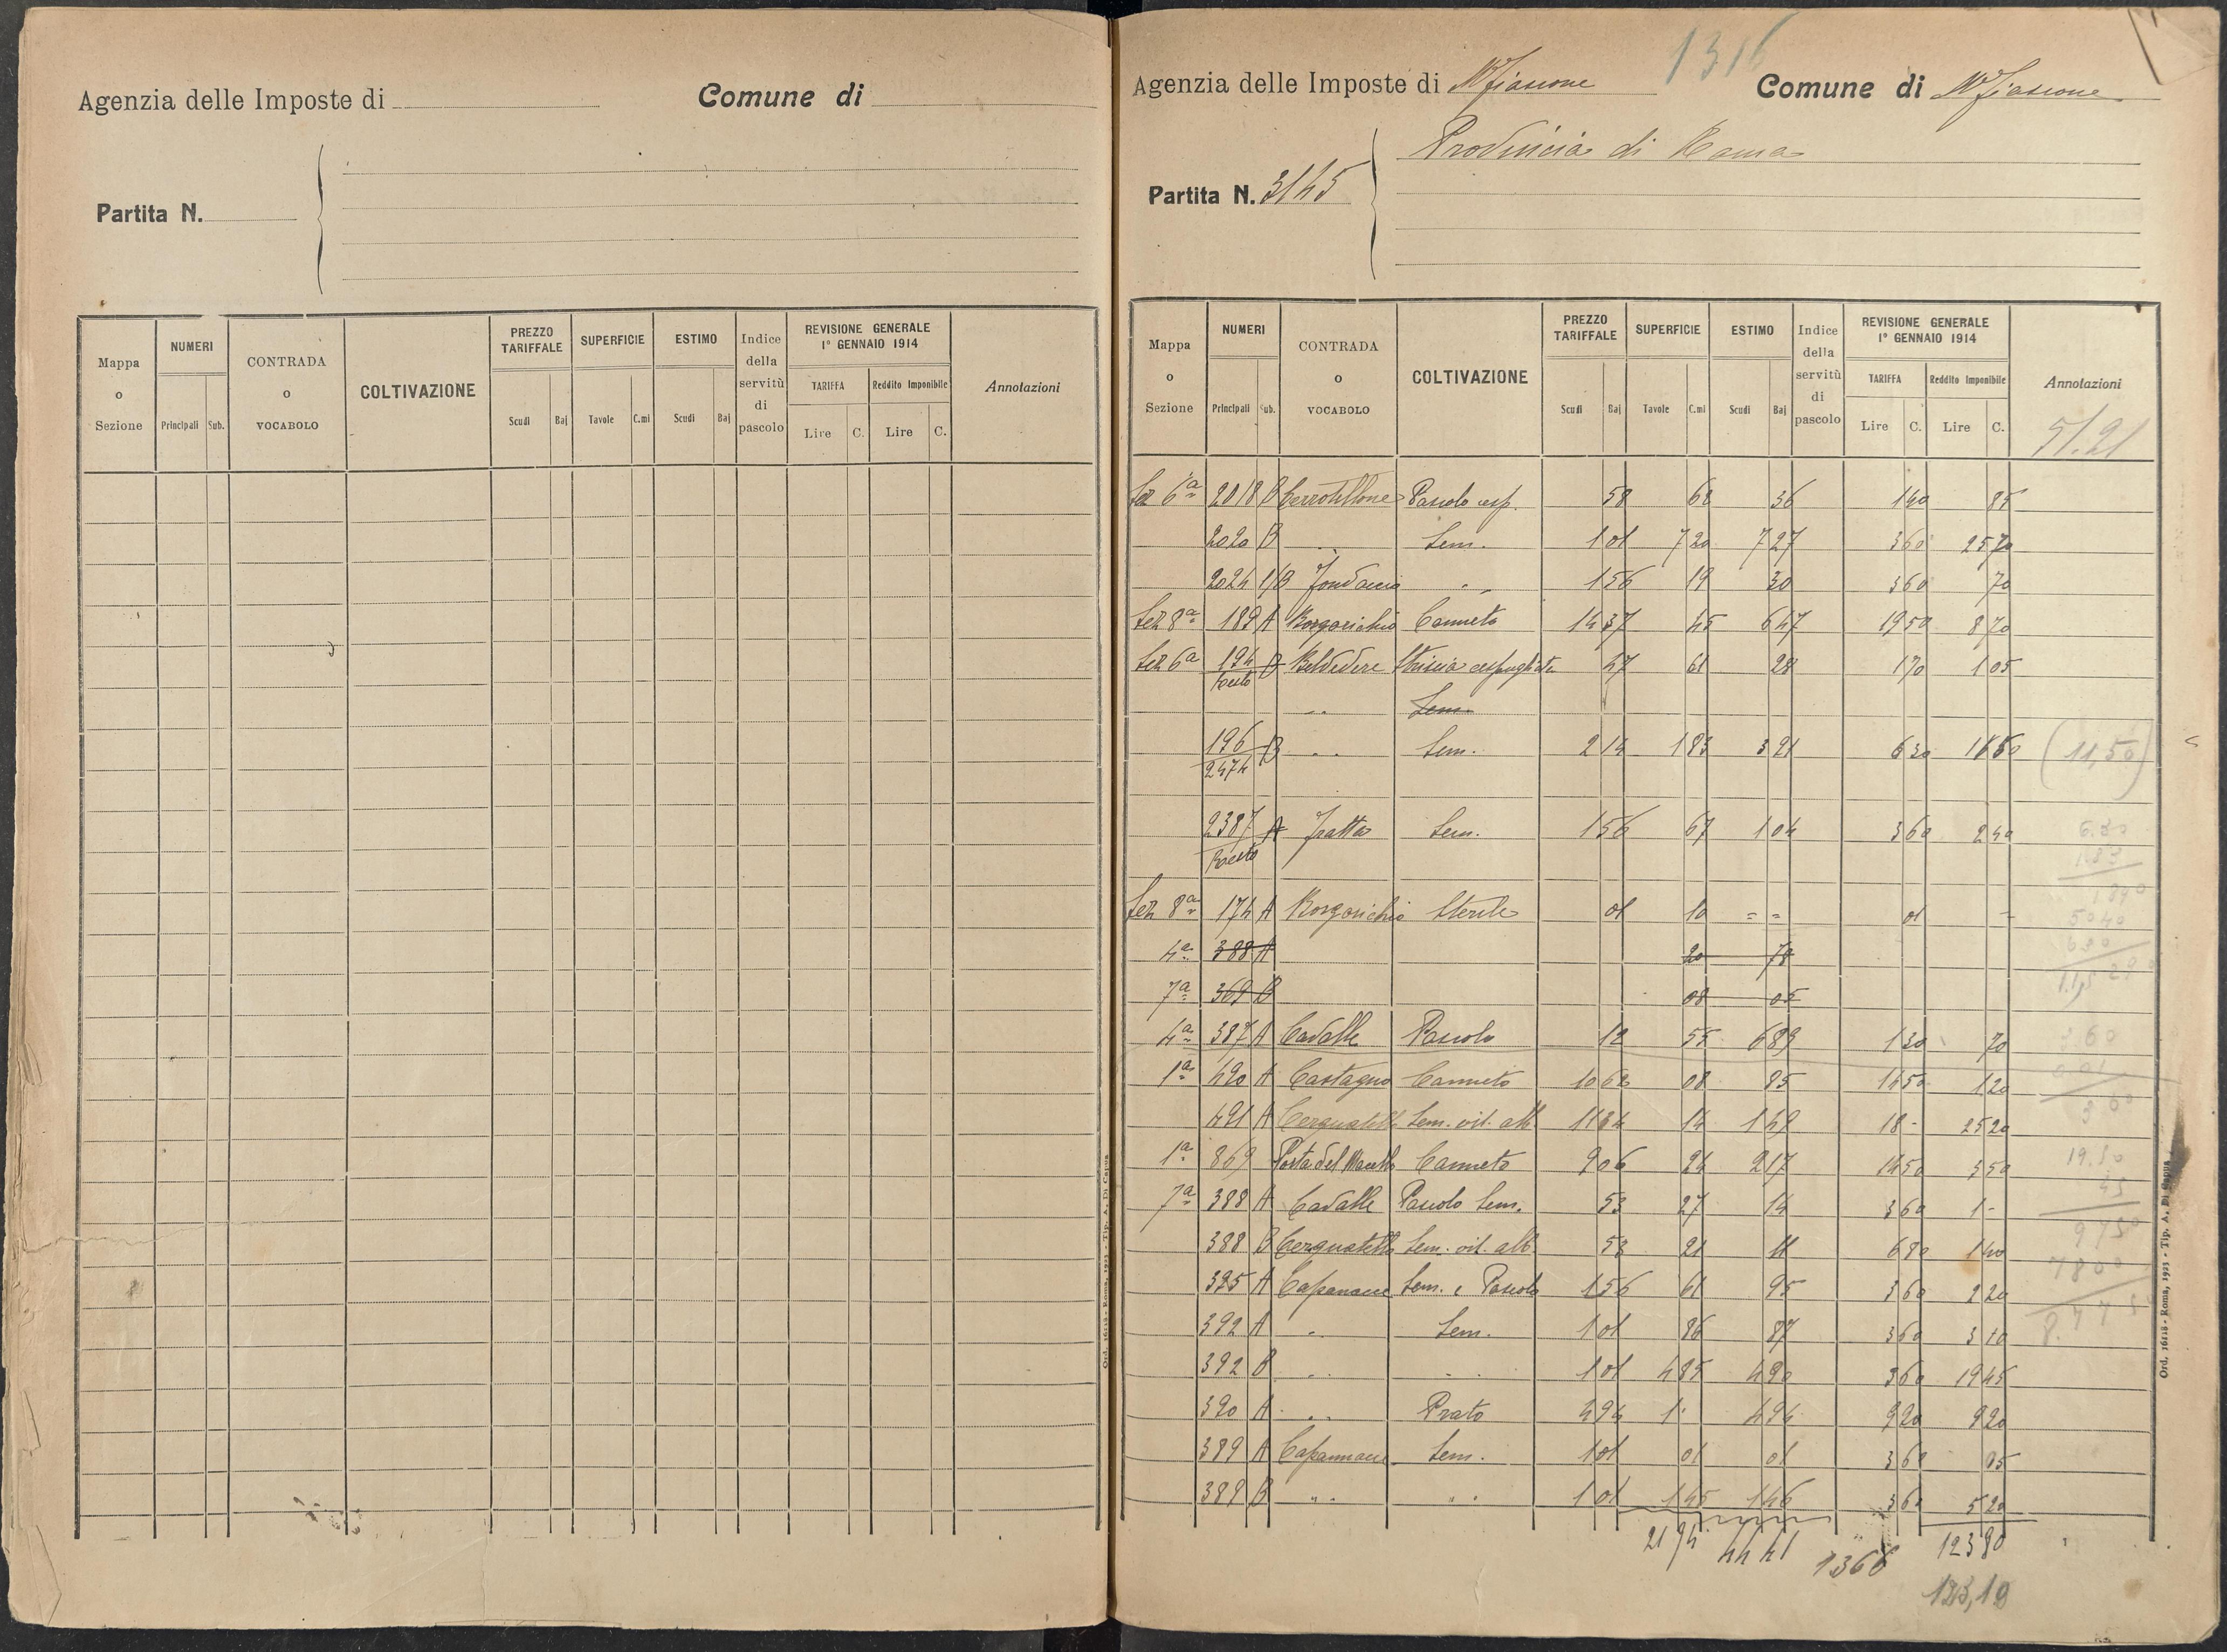 Agenzia delle Imposte di
Comune di
Partita N.
Mappa o Sezione
NUMERI
Principali Sub.
CONTRADA o VOCABOLO
COLTIVAZIONE
PREZZO TARIFFALE
Scudi Baj
SUPERFICIE
Tavole C.mi
ESTIMO
Scudi Baj
Indice della servitù di pascolo
REVISIONE GENERALE 1° GENNAIO 1914
TARIFFA
Lire C.
Reddito Imponibile
Lire C.
Annotazioni
Ord. 16118 - Roma, 1923 - Tip. A. Di Capua
1316
Agenzia delle Imposte di Mfiascone
Comune di Mfiascone
Provincia di Roma
Partita N. 3145
Mappa o Sezione
NUMERI
Principali Sub.
CONTRADA o VOCABOLO
COLTIVAZIONE
PREZZO TARIFFALE
Scudi Baj
SUPERFICIE
Tavole C.mi
ESTIMO
Scudi Baj
Indice della servitù di pascolo
REVISIONE GENERALE 1° GENNAIO 1914
TARIFFA
Lire C.
Reddito Imponibile
Lire C.
Annotazioni
51.21
Sez 6a 2018 B Pascolo cesp. 58 62 36 140 85
2020 B " Sem. 1 01 7 20 7 27 3 60 25 70
2024 1/B " 1 56 19 30 3 60 70
Sez 8a 189 A Borgarichio Canneto 14 37 45 6 47 19 50 8 70
Sez 6a 194 resto B Belvedere Striscia cespugliata 47 61 28 1 70 1 05
" Sem.
196/2474 B " Sem. 2 14 1 83 3 91 6 30 11 50 (11,50)
2387 resto A Fratta Sem. 1 56 67 1 04 3 60 2 40
6.30
1.83
1890
5040
630
Sez 8a 174 A Borgarichio Sterile 01 10 = = 01 -
4a 388 A 20 78
7a 369 B 08 05
4a 387 A Cavalle Pascolo 12 55 6 89 1 30 70
3 60
1a 490 A Castagno Canneto 10 62 08 85 14 50 1 20
3 60
491 A Cerquatella Sem. vit. alb 11 34 14 1 49 18 - 25 20
1a 869 Canneto 9 06 24 2 17 14 50 3 50
19.50
45
7a 388 A Cavalle Pascolo Sem. 53 27 14 3 60 1 -
9750
388 B Cerquatella Sem. vit. alb 53 21 11 6 80 1 40
7800
395 A Capannacce Sem. e Pascolo 1 56 61 95 3 60 2 20
392 A " Sem. 1 01 86 87 3 60 3 10
392 B " " 1 01 4 85 4 90 3 60 19 45
390 A " Prato 4 94 1 - 4 94 9 20 9 20
389 A Capannacce Sem. 1 01 01 01 3 60 05
389 B " " 1 01 1 45 1 46 3 60 5 20
21 94 44 41 1366 123 80
123,19
Ord. 16118 - Roma, 1923 - Tip. A. Di Capua